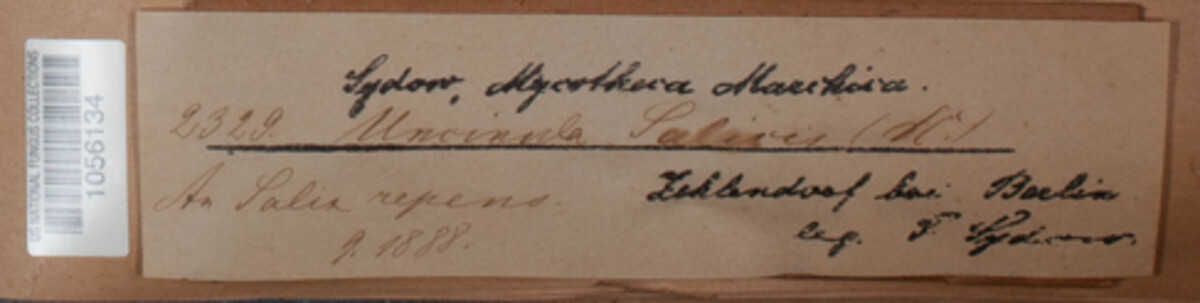 US NATIONAL FUNGUS COLLECTIONS
1056134
Sydow, Mycotheca Marchica.
2329. Uncinula Salicis (W.)
An Salix repens.
9.1888.
Zehlendorf bei Berlin
leg. P. Sydow.